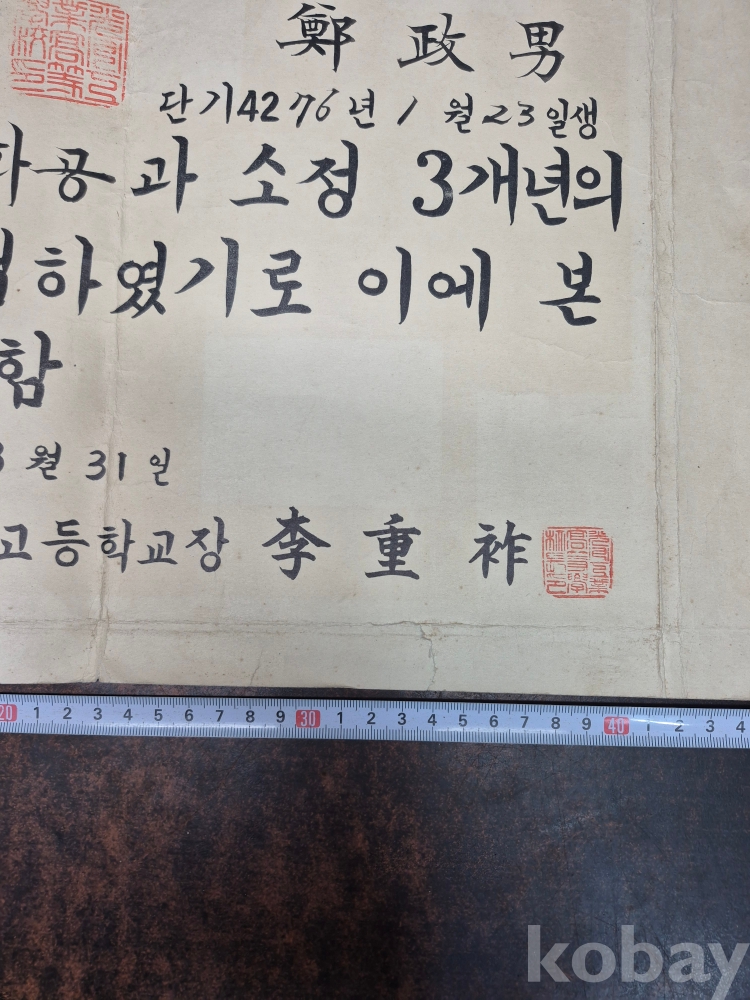 鄭 政 男
단기4276년 1 월 23일생
공과 소정 3개년의
하였기로 이에 본
함
월 31 일
고등학교장 李 重 祚
20 1 2 3 4 5 6 7 8 9 30 1 2 3 4 5 6 7 8 9 40 1 2 3 4
kobay